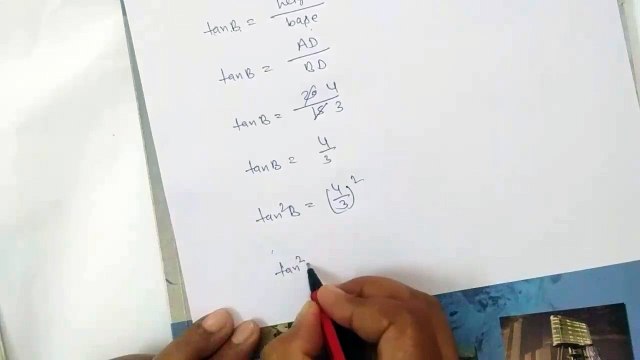 tanB = heig / base
tanB = AD / BD
tanB = 20 4 / 15 3
tanB = 4/3
tan²B = (4/3)²
tan²